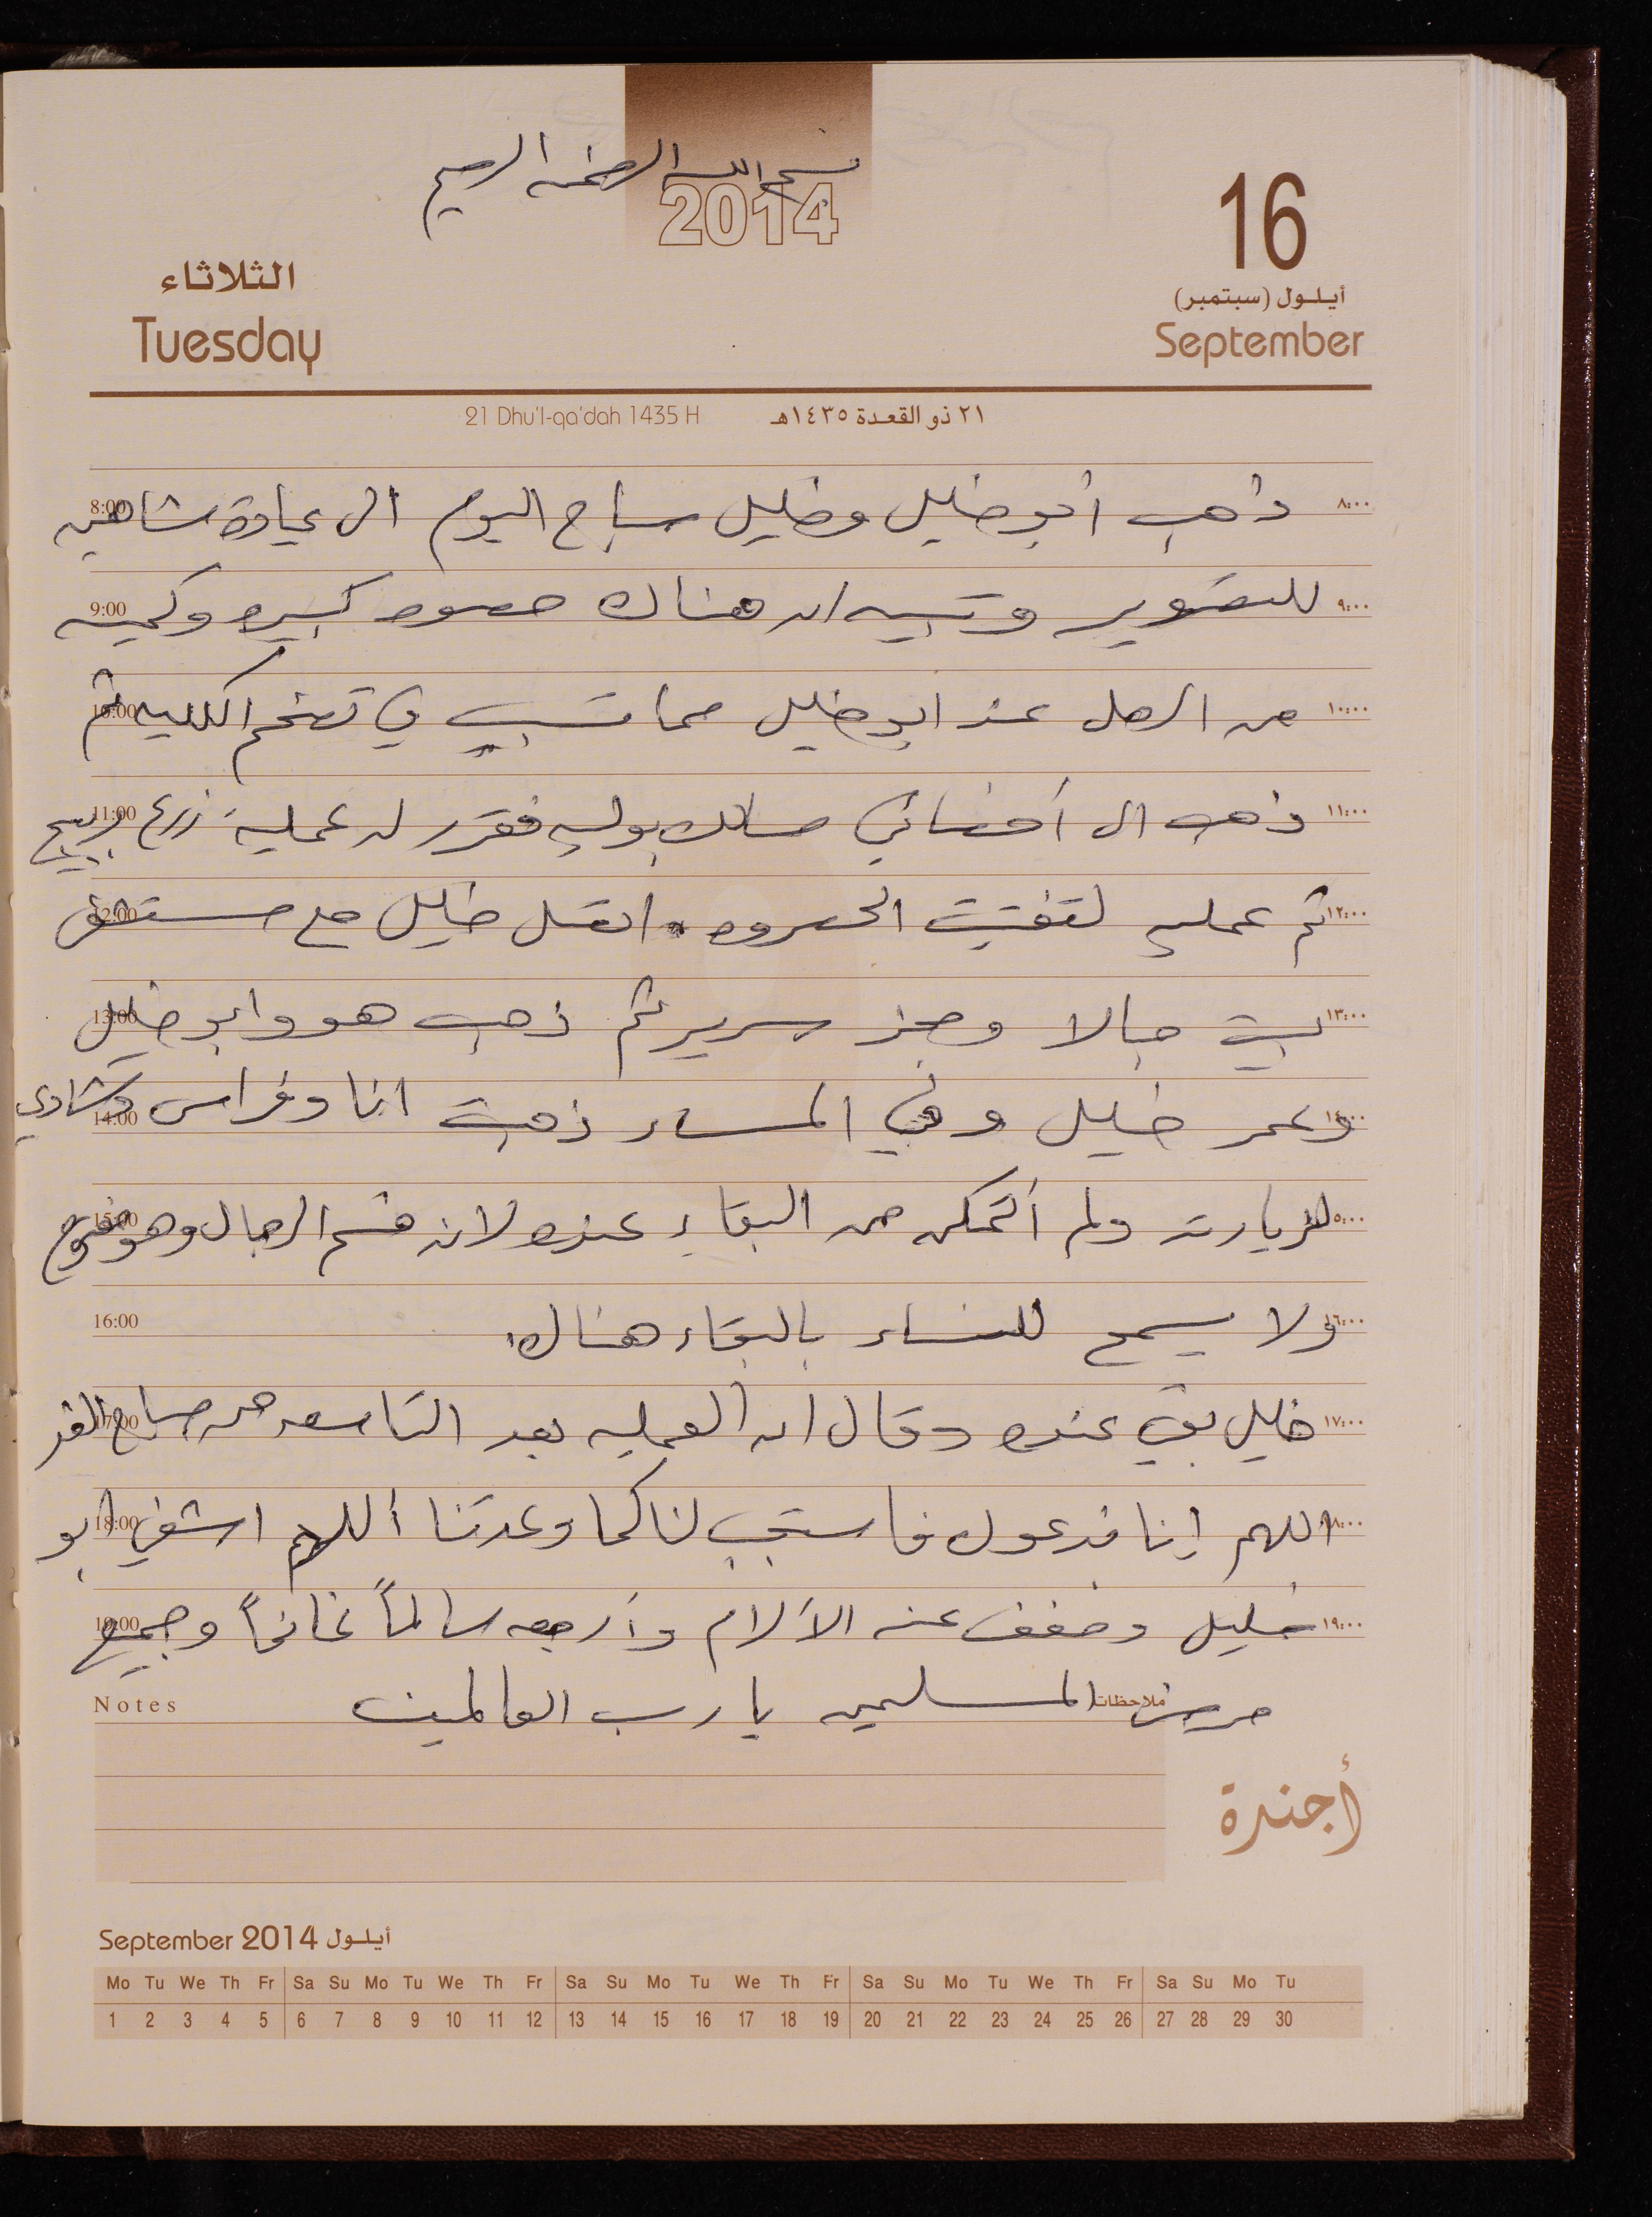 بسم الله الرحمن الرحيم
2014
16
أيلول (سبتمبر)
September
الثلاثاء
Tuesday
21 Dhu'l-qa'dah 1435 H ٢١ ذو القعدة ١٤٣٥هـ
٨:٠٠ ذهب ابو خليل وخليل صباح اليوم الى عيادة شاهين 8:00
٩:٠٠ للتصوير وتبين ان هناك حصوه كبيره وكميه 9:00
١٠:٠٠ من الرمل عند ابو خليل مما تسبب في تضخم الكليه ثم 10:00
١١:٠٠ ذهب الى أخصائي مسالك بوليه فقرر له عملية زرع بربيج 11:00
١٢:٠٠ ثم عمليه لتفتيت الحصوه. اتصل خليل مع مستشفى 12:00
١٣:٠٠ بيت جالا وحجز سرير ثم ذهب هو وابو خليل 13:00
١٤:٠٠ وعمر خليل وفي المساء ذهبت انا وفراس وشادي 14:00
١٥:٠٠ لزيارته ولم أتمكن من البقاء عنده لانه قسم الرجال وهو مفتوح 15:00
١٦:٠٠ ولا يسمح للنساء بالبقاء هناك. 16:00
١٧:٠٠ خليل بقي عنده وقال ان العمليه بعد التاسعه من صباح الغد 17:00
١٨:٠٠ اللهم إنا ندعوك فاستجب لنا كما وعدتنا أللهم اشفي ابو 18:00
١٩:٠٠ خليل وخفف عنه الآلام وأرجعه سالماً غانماً وجميع 19:00
ملاحظات مرضى المسلمين يا رب العالمين Notes
أجندة
September 2014 أيلول
Mo Tu We Th Fr Sa Su Mo Tu We Th Fr Sa Su Mo Tu We Th Fr Sa Su Mo Tu We Th Fr Sa Su Mo Tu
1 2 3 4 5 6 7 8 9 10 11 12 13 14 15 16 17 18 19 20 21 22 23 24 25 26 27 28 29 30